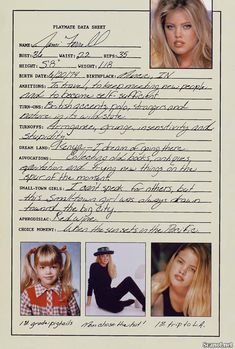 PLAYMATE DATA SHEET
NAME:
BUST: WAIST: HIPS: 35
HEIGHT: 5'8" WEIGHT: 118
BIRTH DATE: BIRTHPLACE: , IN
AMBITIONS: To travel, to keep meeting new people
and to become self-sufficient
TURN-ONS: British accents, polo, strangers and
nature in its wild state
TURNOFFS: Arrogance, grunge, insensitivity and
stupidity
DREAM LAND: Kenya - I dream of going there
AVOCATIONS: Collecting old books, antiques,
and trying new things on the
spur of the moment
SMALL-TOWN GIRLS: I can't speak for others, but
this small-town girl was always drawn
toward the big city.
APHRODISIAC: Red wine
CHOICE MOMENT: When the sun sets in the Pacific
1st grade pigtails
the hat!
1st trip to L.A.